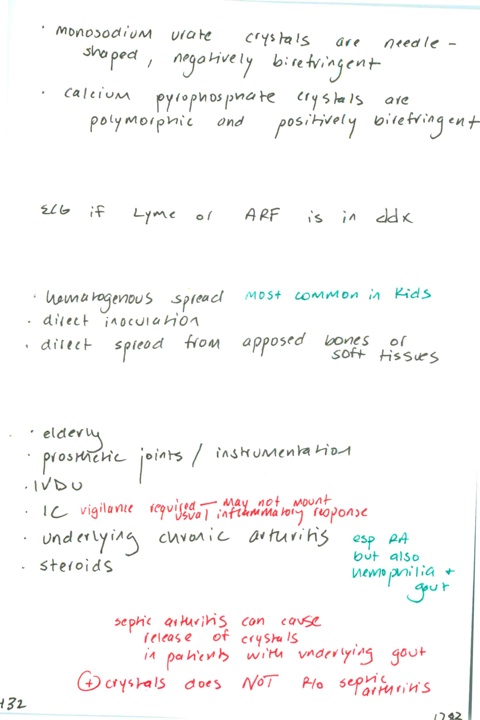 • monosodium urate crystals are needle-
shaped, negatively birefringent
• calcium pyrophosphate crystals are
polymorphic and positively birefringent
ECG if Lyme or ARF is in ddx
• hematogenous spread most common in kids
• direct inoculation
• direct spread from apposed bones or
soft tissues
• elderly
• prosthetic joints / instrumentation
• IVDU
• IC vigilance required — may not mount
usual inflammatory response
• underlying chronic arthritis esp RA
but also
• steroids hemophilia +
gout
septic arthritis can cause
release of crystals
in patients with underlying gout
⊕ crystals does NOT r/o septic
arthritis
432